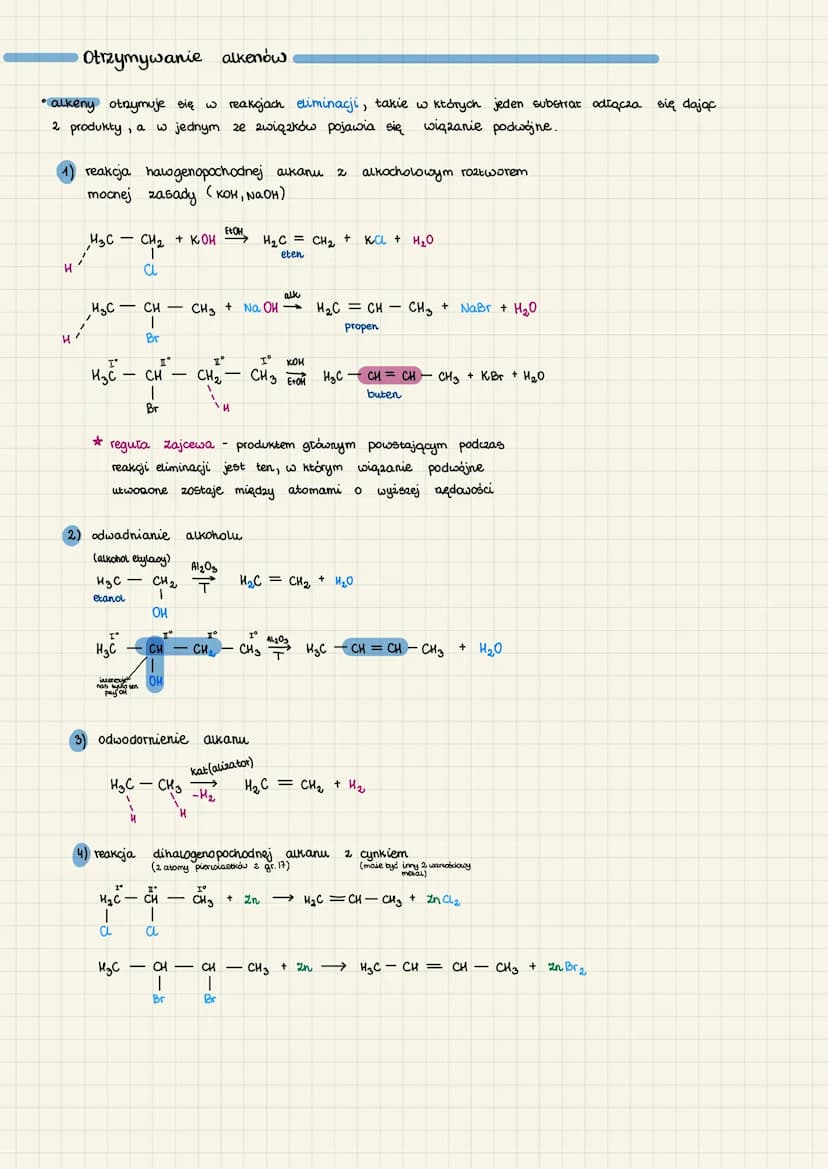 Otrzymywanie alkenów
• alkeny otrzymuje się w reakcjach eliminacji, takie w których jeden substrat odłącza się dając
2 produkty, a w jednym ze związków pojawia się wiązanie podwójne.
1) reakcja halogenopochodnej alkanu z alkocholowym roztworem
mocnej zasady (KOH, NaOH)
H₃C — CH₂ + KOH →(EtOH) H₂C = CH₂ + KCl + H₂O
eten
H Cl
H₃C — CH — CH₃ + NaOH →(alk) H₂C = CH — CH₃ + NaBr + H₂O
propen
H Br
I° II° II° I° KOH
H₃C — CH — CH₂ — CH₃ →(EtOH) H₃C — CH = CH — CH₃ + KBr + H₂O
buten
Br H
* reguła Zajcewa - produktem głównym powstającym podczas
reakcji eliminacji jest ten, w którym wiązanie podwójne
utworzone zostaje między atomami o wyższej rzędowości
2) odwadnianie alkoholu
(alkohol etylowy) Al₂O₃
H₃C — CH₂ →(T) H₂C = CH₂ + H₂O
etanol
OH
I° II° II° I° Al₂O₃
H₃C — CH — CH₂ — CH₃ →(T) H₃C — CH = CH — CH₃ + H₂O
OH
interesuje
nas
przy OH
3) odwodornienie alkanu
kat(alizator)
H₃C — CH₃ → H₂C = CH₂ + H₂
-H₂
H H
4) reakcja dihalogenopochodnej alkanu z cynkiem
(2 atomy pierwiastków z gr. 17) (może być inny 2 wartościowy
metal)
I° II° I°
H₂C — CH — CH₃ + Zn → H₂C = CH — CH₃ + ZnCl₂
Cl Cl
H₃C — CH — CH — CH₃ + Zn → H₃C — CH = CH — CH₃ + ZnBr₂
Br Br